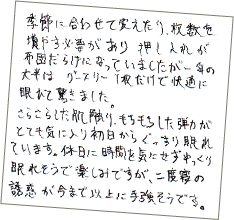 季節に合わせて変えたり、枚数を
増やす必要があり 押し入れが
布団だらけになっていましたが 一年の
大半は ワーメリー 1枚だけで快適に
眠れて驚きました。
さらさらした肌触り、もちもちした弾力が
とても気に入り初日からぐっすり眠れ
ています。休日に時間を気にせずゆっくり
眠れそうで楽しみですが、二度寝の
誘惑が今まで以上に手強そうです。